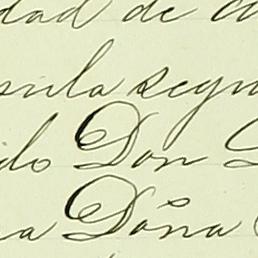 dad de
sula segun
do Don
a Doña